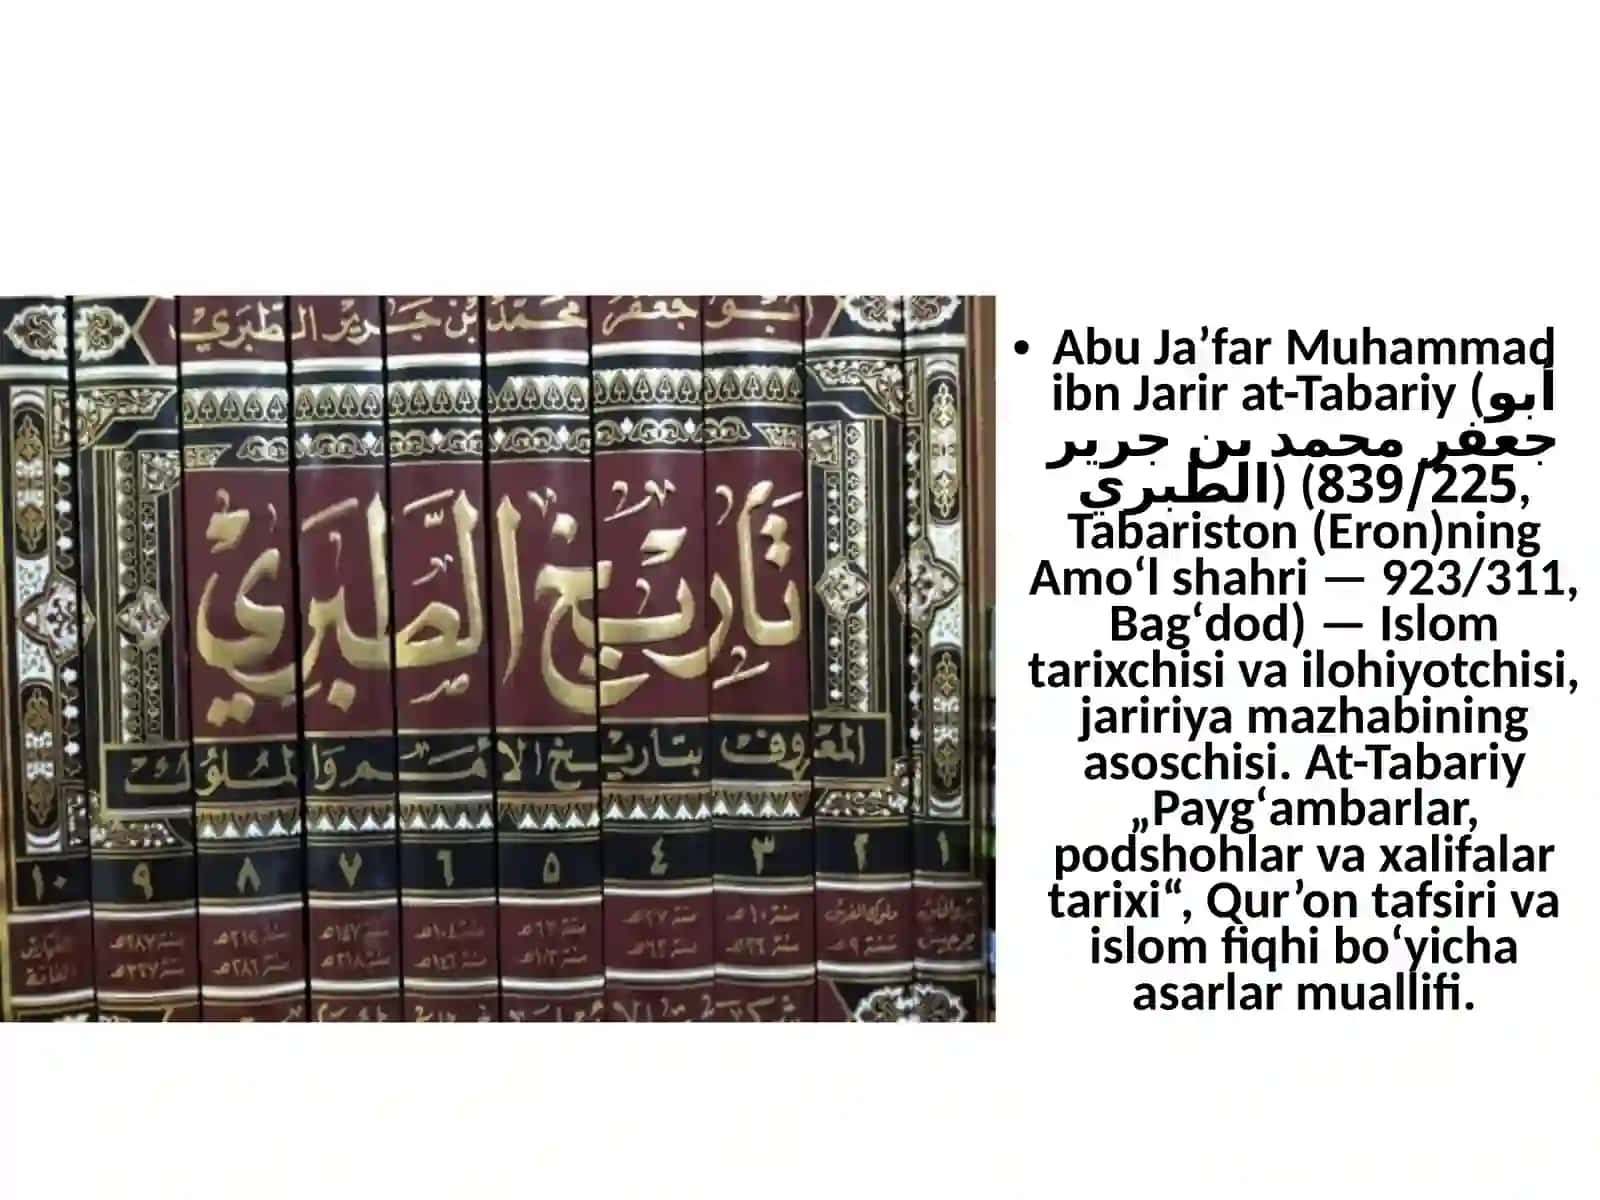 أبو جعفر محمد بن جرير الطبري
تاريخ الطبري
المعروف بتاريخ الأمم والملوك
١٠ ٩ ٨ ٧ ٦ ٥ ٤ ٣ ٢ ١
• Abu Ja’far Muhammad
ibn Jarir at-Tabariy (أبو
جعفر محمد بن جرير
الطبري) (839/225,
Tabariston (Eron)ning
Amo‘l shahri — 923/311,
Bag‘dod) — Islom
tarixchisi va ilohiyotchisi,
jaririya mazhabining
asoschisi. At-Tabariy
„Payg‘ambarlar,
podshohlar va xalifalar
tarixi“, Qur’on tafsiri va
islom fiqhi bo‘yicha
asarlar muallifi.